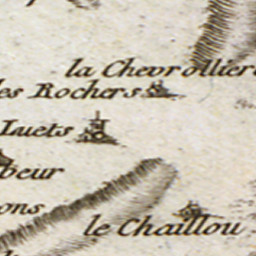 la Chevrollier
les Rochers
Luets
beur
ons
le Chaillou